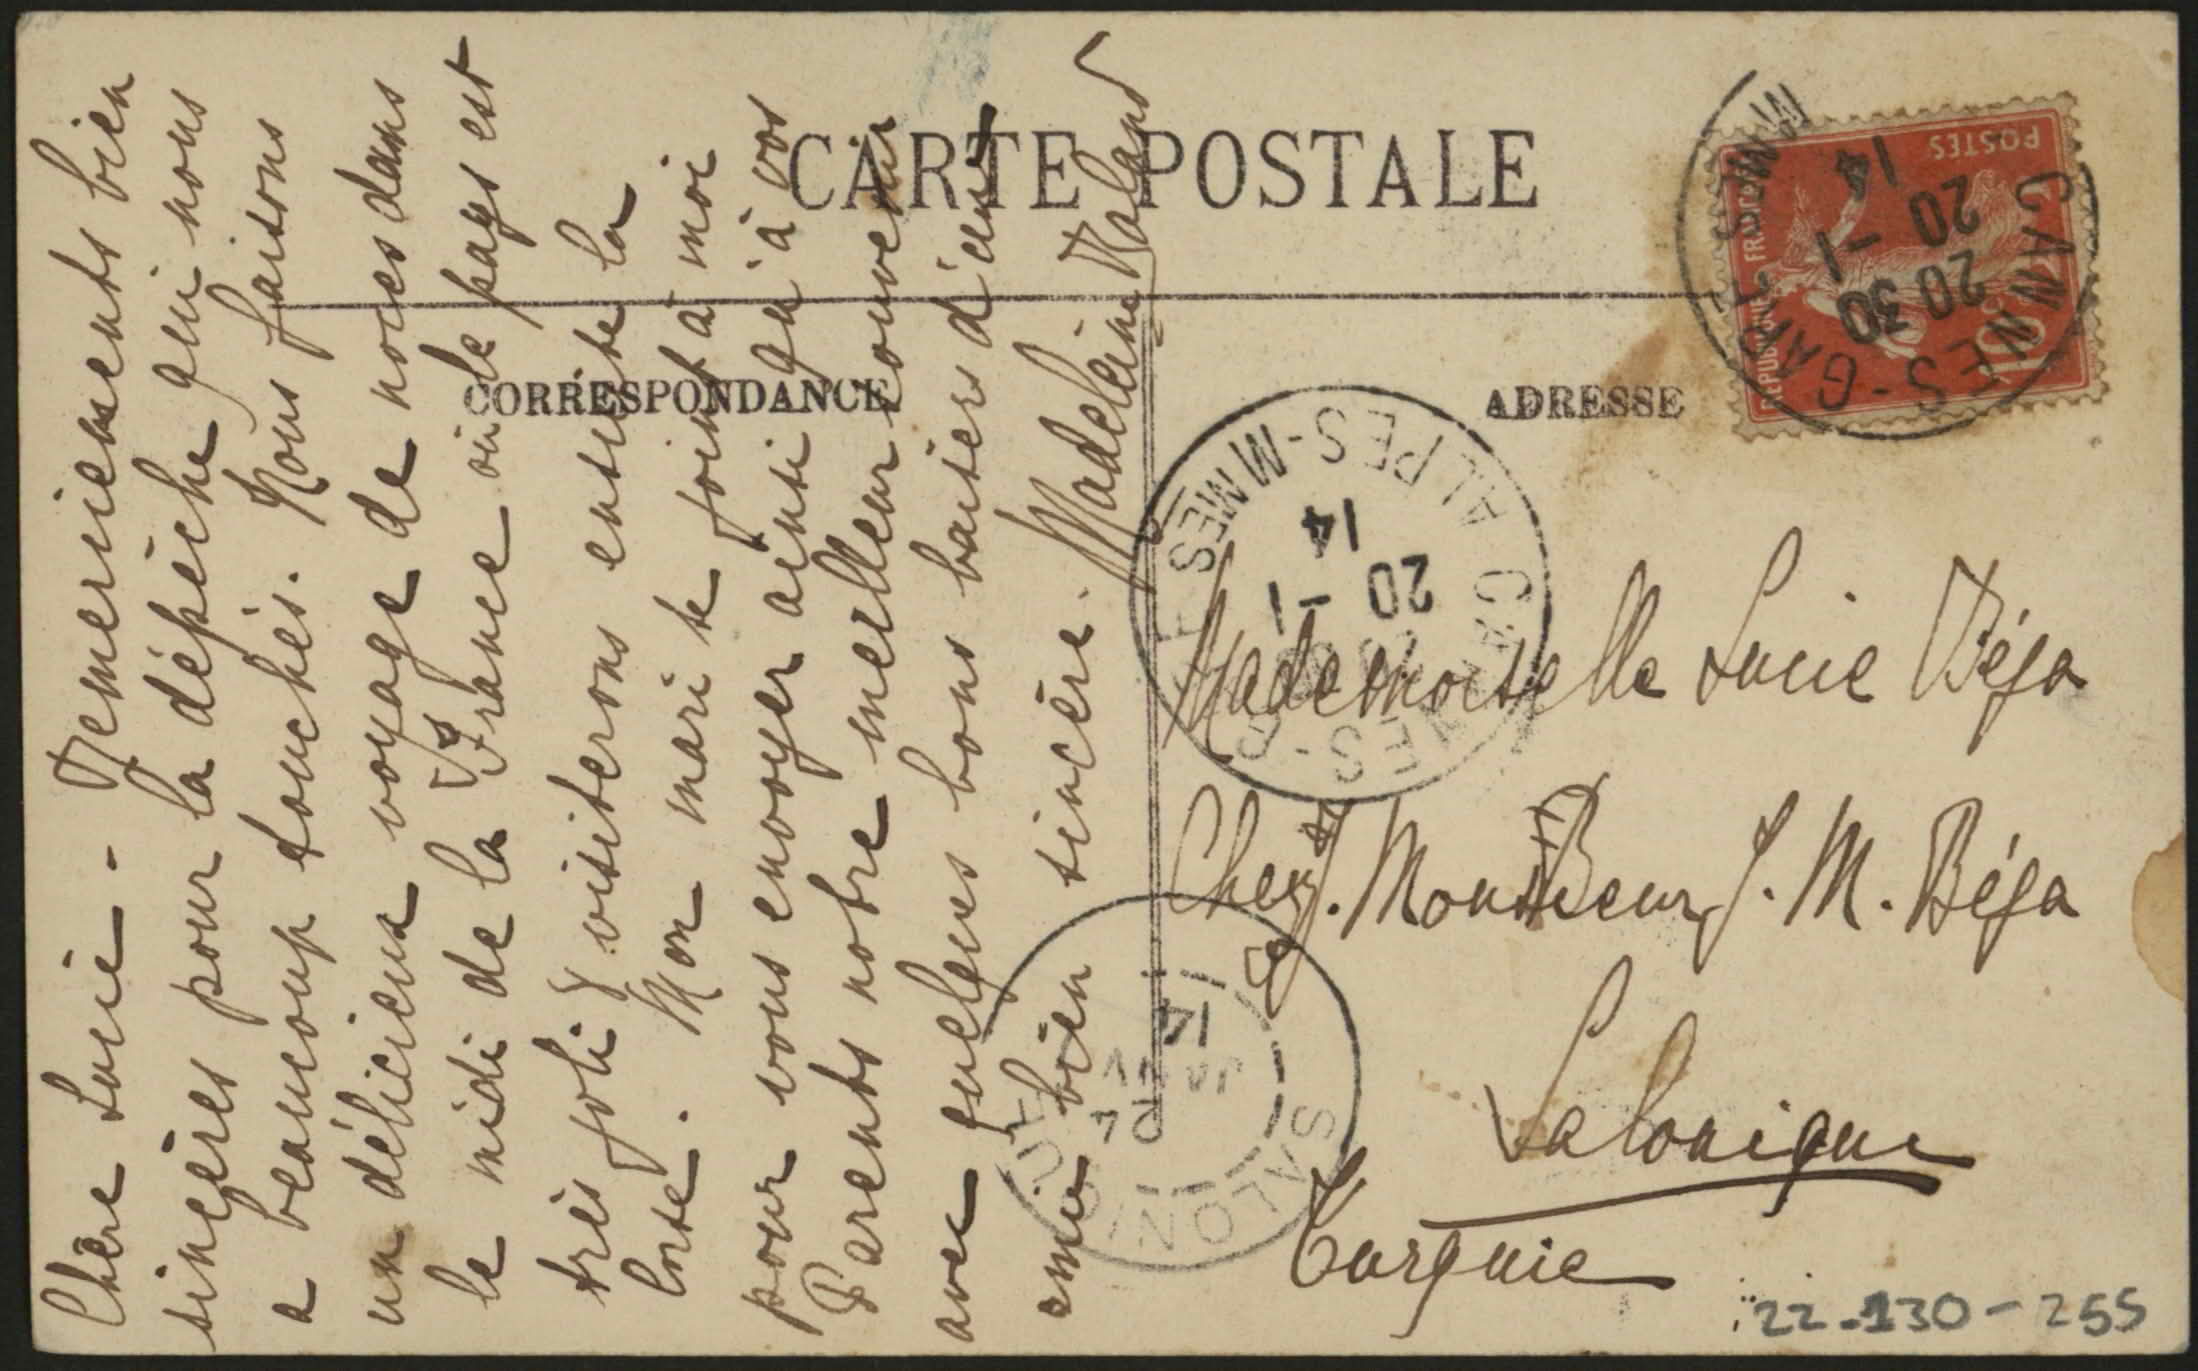 CARTE POSTALE
CORRESPONDANCE
ADRESSE
Chère Lucie - Remerciements bien
sincères pour la dépêche qui nous
a beaucoup touchés. Nous faisons
un délicieux voyage de noces dans
le midi de la France où le pays est
très joli & visiterons ensuite la
Corse. Mon mari se joint à moi
pour vous envoyer ainsi qu'à vos
Parents notre meilleur souvenir
avec quelques bons baisers d'une
amie bien sincère. Madeleine
Mademoiselle Lucie Béja
Chez Monsieur J. M. Béja
Salonique
Turquie
REPUBLIQUE FRANÇAISE
POSTES
10
CANNES-GARE
20 30
20 -1
14
CANNES
ALPES-MMES
20 -1
14
SALONIQUE
JANV
14
22-130-255